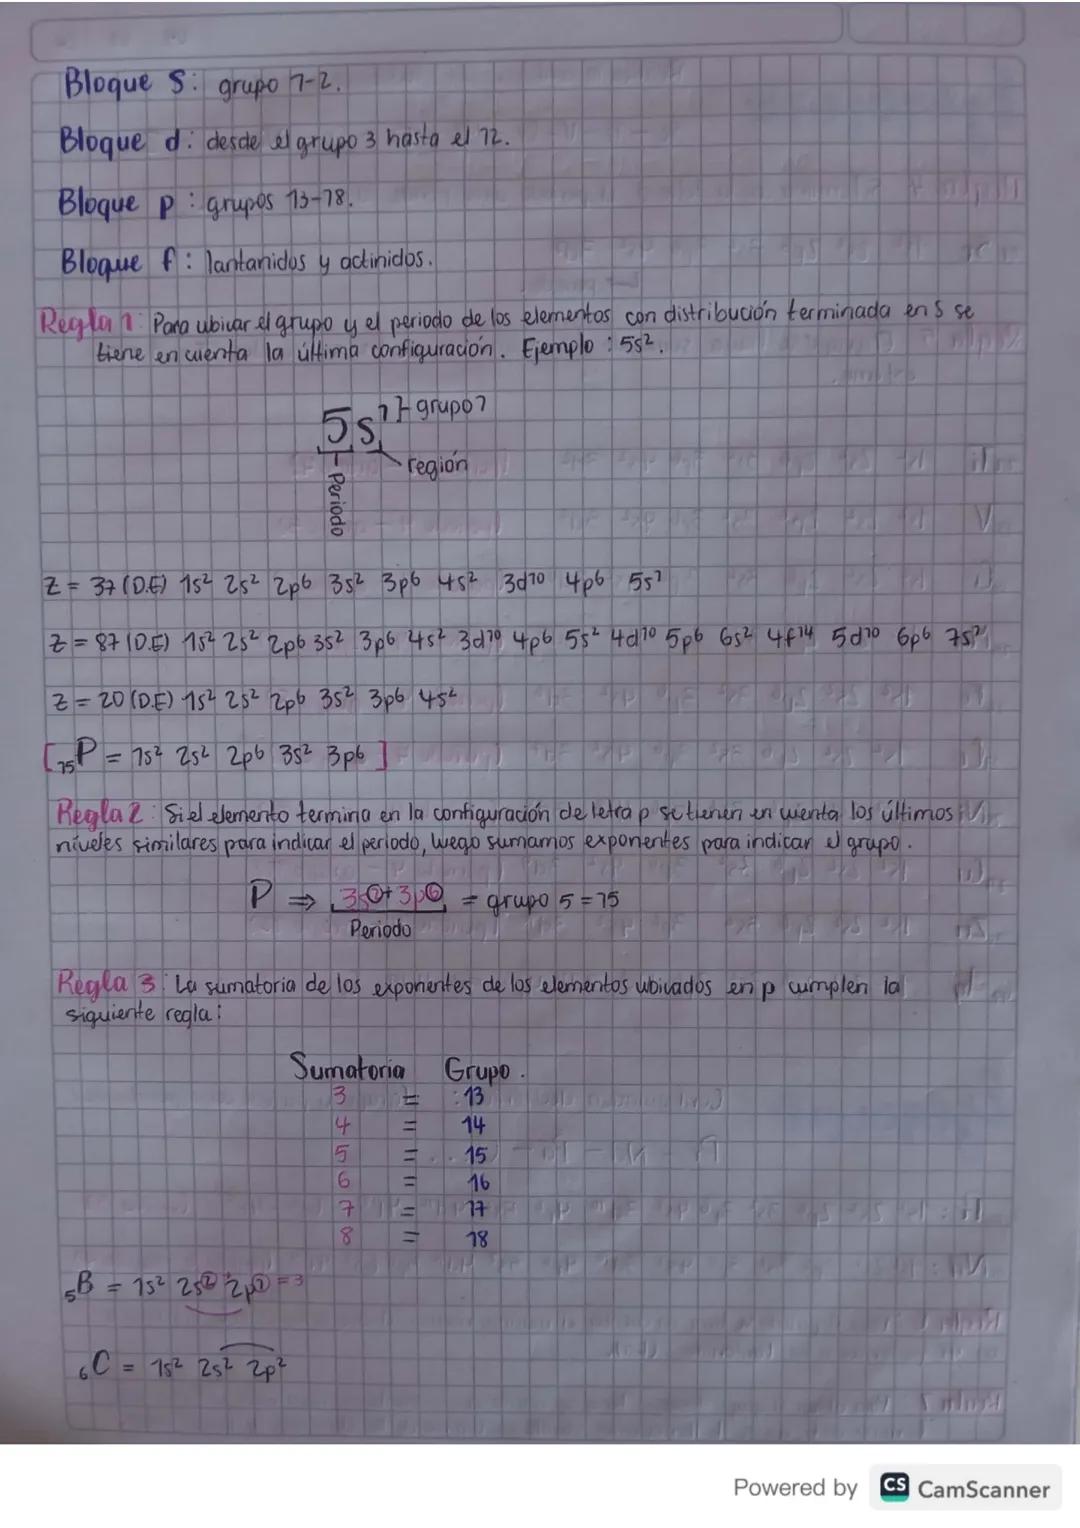 Bloque s: grupo 1-2.
Bloque d: desde el grupo 3 hasta el 12.
Bloque p: grupos 13-18.
Bloque f: lantanidos y actinidos.
Regla 1: Para ubicar el grupo y el periodo de los elementos con distribución terminada en s se
tiene en cuenta la última configuración. Ejemplo: 5s².
5s¹ }- grupo 1
región
Periodo
Z = 37 (D.E) 1s² 2s² 2p⁶ 3s² 3p⁶ 4s² 3d¹⁰ 4p⁶ 5s¹
Z = 87 (D.E) 1s² 2s² 2p⁶ 3s² 3p⁶ 4s² 3d¹⁰ 4p⁶ 5s² 4d¹⁰ 5p⁶ 6s² 4f¹⁴ 5d¹⁰ 6p⁶ 7s¹
Z = 20 (D.E) 1s² 2s² 2p⁶ 3s² 3p⁶ 4s²
[₁₅P = 1s² 2s² 2p⁶ 3s² 3p⁶]
Regla 2: Si el elemento termina en la configuración de letra p se tienen en cuenta los últimos
niveles similares para indicar el periodo, luego sumamos exponentes para indicar el grupo.
P ⇒ 3s② + 3p⑥ = grupo 5 = 15
Periodo
Regla 3: La sumatoria de los exponentes de los elementos ubicados en p cumplen la
siguiente regla:
Sumatoria Grupo.
3 = :13
4 = 14
5 = 15
6 = 16
7 = 17
8 = 18
₅B = 1s² 2s② + 2p① = 3
₆C = 1s² 2s² 2p²
Powered by CS CamScanner